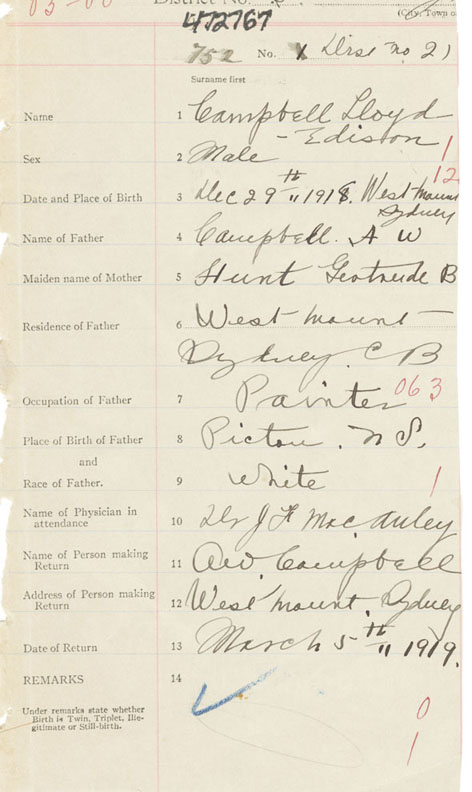 District No.
(City, Town o
472767
752 No. X Dist no 2)
Surname first
Name 1 Campbell Lloyd
- Edison
1
Sex 2 Male
12
Date and Place of Birth 3 Dec 29th " 1918. West Mount
Sydney
Name of Father 4 Campbell. A W
Maiden name of Mother 5 Hunt Gertrude B
Residence of Father 6 West Mount -
Sydney. C B
Occupation of Father 7 Painter 063
Place of Birth of Father 8 Pictou. N S.
and
Race of Father. 9 White 1
Name of Physician in
attendance 10 Dr J F MacAuley
Name of Person making
Return 11 AW. Campbell
Address of Person making
Return 12 West Mount. Sydney
Date of Return 13 March 5th " 1919.
REMARKS 14
Under remarks state whether
Birth is Twin, Triplet, Ille-
gitimate or Still-birth.
0
1